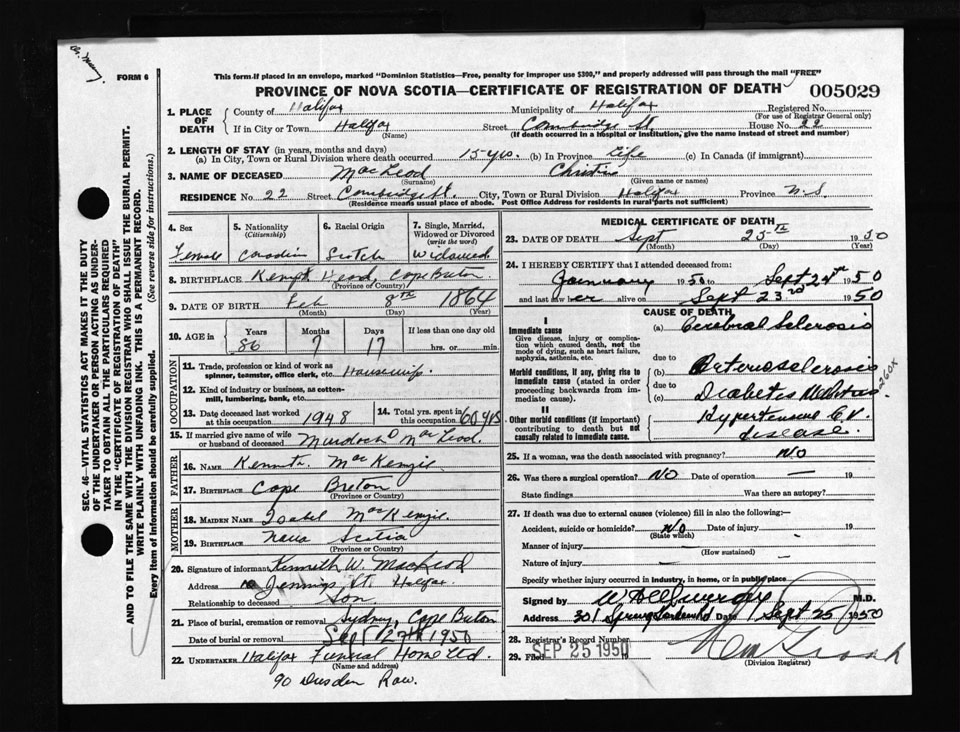 Dr. Murray
FORM 6
This form if placed in an envelope, marked "Dominion Statistics—Free, penalty for improper use $300," and properly addressed will pass through the mail "FREE"
PROVINCE OF NOVA SCOTIA—CERTIFICATE OF REGISTRATION OF DEATH 005029
1. PLACE OF DEATH County of Halifax Municipality of Halifax Registered No.
(For use of Registrar General only)
If in City or Town Halifax Street Cambridge St. House No. 22
(Name) (If death occurred in a hospital or institution, give the name instead of street and number)
2. LENGTH OF STAY (in years, months and days)
(a) In City, Town or Rural Division where death occurred 15 yrs. (b) In Province Life (c) In Canada (if immigrant)
3. NAME OF DECEASED MacLeod Christie
(Surname) (Given name or names)
RESIDENCE No. 22 Street Cambridge St. City, Town or Rural Division Halifax Province N.S
(Residence means usual place of abode. Post Office Address for residents in rural parts not sufficient)
4. Sex 5. Nationality (Citizenship) 6. Racial Origin 7. Single, Married, Widowed or Divorced (write the word)
Female Canadian Scotch Widowed
8. BIRTHPLACE Kempt Head, Cape Breton.
(Province or Country)
9. DATE OF BIRTH Feb 8TH 1864
(Month) (Day) (Year)
10. AGE in Years Months Days If less than one day old
86 7 17 hrs. or min.
OCCUPATION
11. Trade, profession or kind of work as spinner, teamster, office clerk, etc. Housewife.
12. Kind of industry or business, as cotten-mill, lumbering, bank, etc.
13. Date deceased last worked at this occupation 1948 14. Total yrs. spent in this occupation 60 yrs
15. If married give name of wife or husband of deceased Murdoch MacLeod.
FATHER
16. NAME Kenneth MacKenzie.
17. BIRTHPLACE Cape Breton
(Province or Country)
MOTHER
18. MAIDEN NAME Isabel MacKenzie.
19. BIRTHPLACE Nova Scotia
(Province or Country)
20. Signature of informant Kenneth W. MacLeod
Address Jennings St. Halifax.
Relationship to deceased Son
21. Place of burial, cremation or removal Sydney, Cape Breton
Date of burial or removal Sept 27th 1950
22. UNDERTAKER Halifax Funeral Home Ltd.
(Name and address)
90 Dresden Row.
MEDICAL CERTIFICATE OF DEATH
23. DATE OF DEATH Sept 25TH 1950
(Month) (Day) (Year)
24. I HEREBY CERTIFY that I attended deceased from:
January 1950 to Sept 24th 1950
and last saw her alive on Sept 23rd 1950
CAUSE OF DEATH
I
Immediate cause (a) Cerebral Sclerosis
Give disease, injury or complication which caused death, not the mode of dying, such as heart failure, asphyxia, asthenia, etc.
due to
Morbid conditions, if any, giving rise to immediate cause (stated in order proceeding backwards from immediate).
(b) Arteriosclerosis
due to
(c) Diabetes Mellitus 260X
II
Other morbid conditions (if important) contributing to death but not causally related to immediate cause.
Hypertensive C.V. disease.
25. If a woman, was the death associated with pregnancy? No
26. Was there a surgical operation? No Date of operation — 19
State findings Was there an autopsy?
27. If death was due to external causes (violence) fill in also the following:—
Accident, suicide or homicide? No Date of injury 19
(State which)
Manner of injury —
(How sustained)
Nature of injury —
Specify whether injury occurred in industry, in home, or in public place
Signed by M.D.
Address 301 Spring Garden Rd Date Sept 25 1950
28. Registrar's Record Number
29. Filed SEP 25 1950 19
(Division Registrar)
SEC. 46—VITAL STATISTICS ACT MAKES IT THE DUTY
OF THE UNDERTAKER OR PERSON ACTING AS UNDER-
TAKER TO OBTAIN ALL THE PARTICULARS REQUIRED
IN THE "CERTIFICATE OF REGISTRATION OF DEATH"
AND TO FILE THE SAME WITH THE DIVISION REGISTRAR WHO SHALL ISSUE THE BURIAL PERMIT.
WRITE PLAINLY WITH UNFADING INK. THIS IS A PERMANENT RECORD.
Every item of information should be carefully supplied. (See reverse side for instructions.)